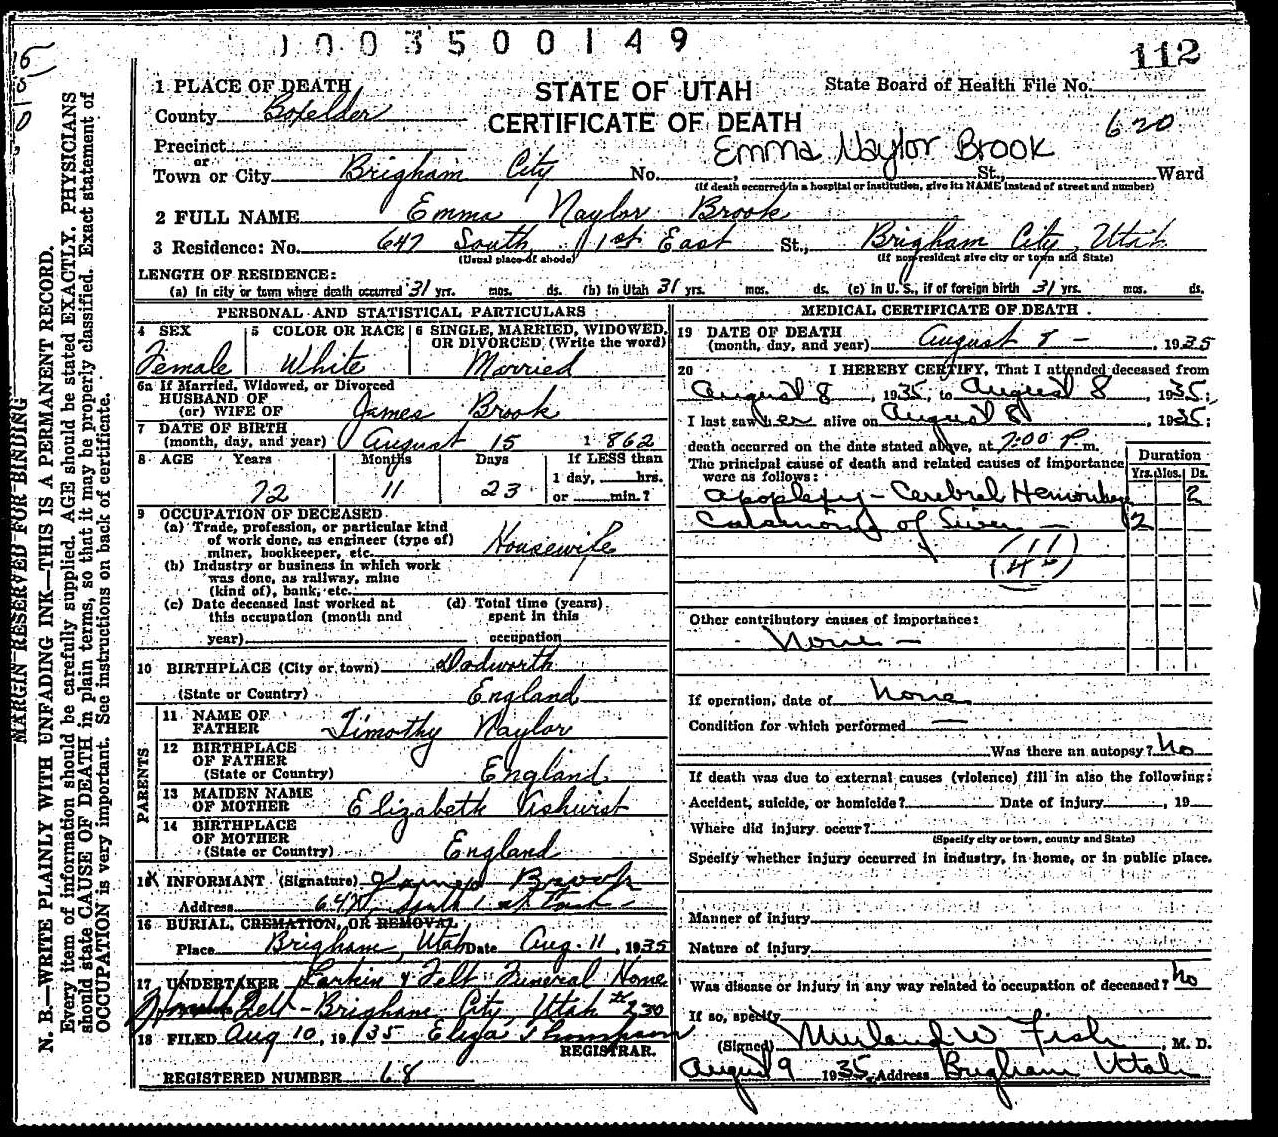 1003500149
112
1 PLACE OF DEATH
STATE OF UTAH
State Board of Health File No.
County Boxelder
CERTIFICATE OF DEATH
620
Precinct
Emma Naylor Brook
or
Town or City Brigham City No. , St., Ward
(If death occurred in a hospital or institution, give its NAME instead of street and number)
2 FULL NAME Emma Naylor Brook
3 Residence: No. 647 South 1st East St., Brigham City, Utah
(Usual place of abode) (If non-resident give city or town and State)
LENGTH OF RESIDENCE:
(a) In city or town where death occurred 31 yrs. mos. ds. (b) In Utah 31 yrs. mos. ds. (c) In U. S., if of foreign birth 31 yrs. mos. ds.
PERSONAL AND STATISTICAL PARTICULARS
4 SEX
Female
5 COLOR OR RACE
White
6 SINGLE, MARRIED, WIDOWED,
OR DIVORCED (Write the word)
Married
6a If Married, Widowed, or Divorced
HUSBAND OF
(or) WIFE OF James Brook
7 DATE OF BIRTH
(month, day, and year) August 15 1862
8 AGE Years Months Days If LESS than
1 day, hrs.
72 11 23 or min.?
9 OCCUPATION OF DECEASED
(a) Trade, profession, or particular kind
of work done, as engineer (type of)
miner, bookkeeper, etc. Housewife
(b) Industry or business in which work
was done, as railway, mine
(kind of), bank, etc.
(c) Date deceased last worked at
this occupation (month and
year)
(d) Total time (years)
spent in this
occupation
10 BIRTHPLACE (City or town) Dodworth
(State or Country) England
PARENTS
11 NAME OF
FATHER Timothy Naylor
12 BIRTHPLACE
OF FATHER
(State or Country) England
13 MAIDEN NAME
OF MOTHER Elizabeth
14 BIRTHPLACE
OF MOTHER
(State or Country) England
15 INFORMANT (Signature) James Brook
Address 647 South 1st East
16 BURIAL, CREMATION, OR REMOVAL
Place Brigham, Utah Date Aug. 11, 1935
17 UNDERTAKER Larkin & Felt Funeral Home
Felt - Brigham City, Utah 230
18 FILED Aug 10, 1935 Eliza Thompson
REGISTRAR.
REGISTERED NUMBER 68
MEDICAL CERTIFICATE OF DEATH
19 DATE OF DEATH
(month, day, and year) August 8 - , 1935
20 I HEREBY CERTIFY, That I attended deceased from
August 8, 1935, to August 8, 1935;
I last saw her alive on August 8, 1935;
death occurred on the date stated above, at 7:00 P. m.
The principal cause of death and related causes of importance
were as follows:
Duration
Yrs. Mos. Ds.
Apoplexy - Cerebral Hemorrhage 2
of Liver - 2
(46)
Other contributory causes of importance:
None -
If operation, date of None
Condition for which performed —
Was there an autopsy? No
If death was due to external causes (violence) fill in also the following:
Accident, suicide, or homicide? Date of injury , 19
Where did injury occur?
(Specify city or town, county and State)
Specify whether injury occurred in industry, in home, or in public place.
Manner of injury
Nature of injury
Was disease or injury in any way related to occupation of deceased? No
If so, specify
(Signed) W Fish, M. D.
August 9 1935, Address Brigham Utah
MARGIN RESERVED FOR BINDING
N. B.—WRITE PLAINLY WITH UNFADING INK—THIS IS A PERMANENT RECORD.
Every item of information should be carefully supplied. AGE should be stated EXACTLY. PHYSICIANS
should state CAUSE OF DEATH in plain terms, so that it may be properly classified. Exact statement of
OCCUPATION is very important. See instructions on back of certificate.